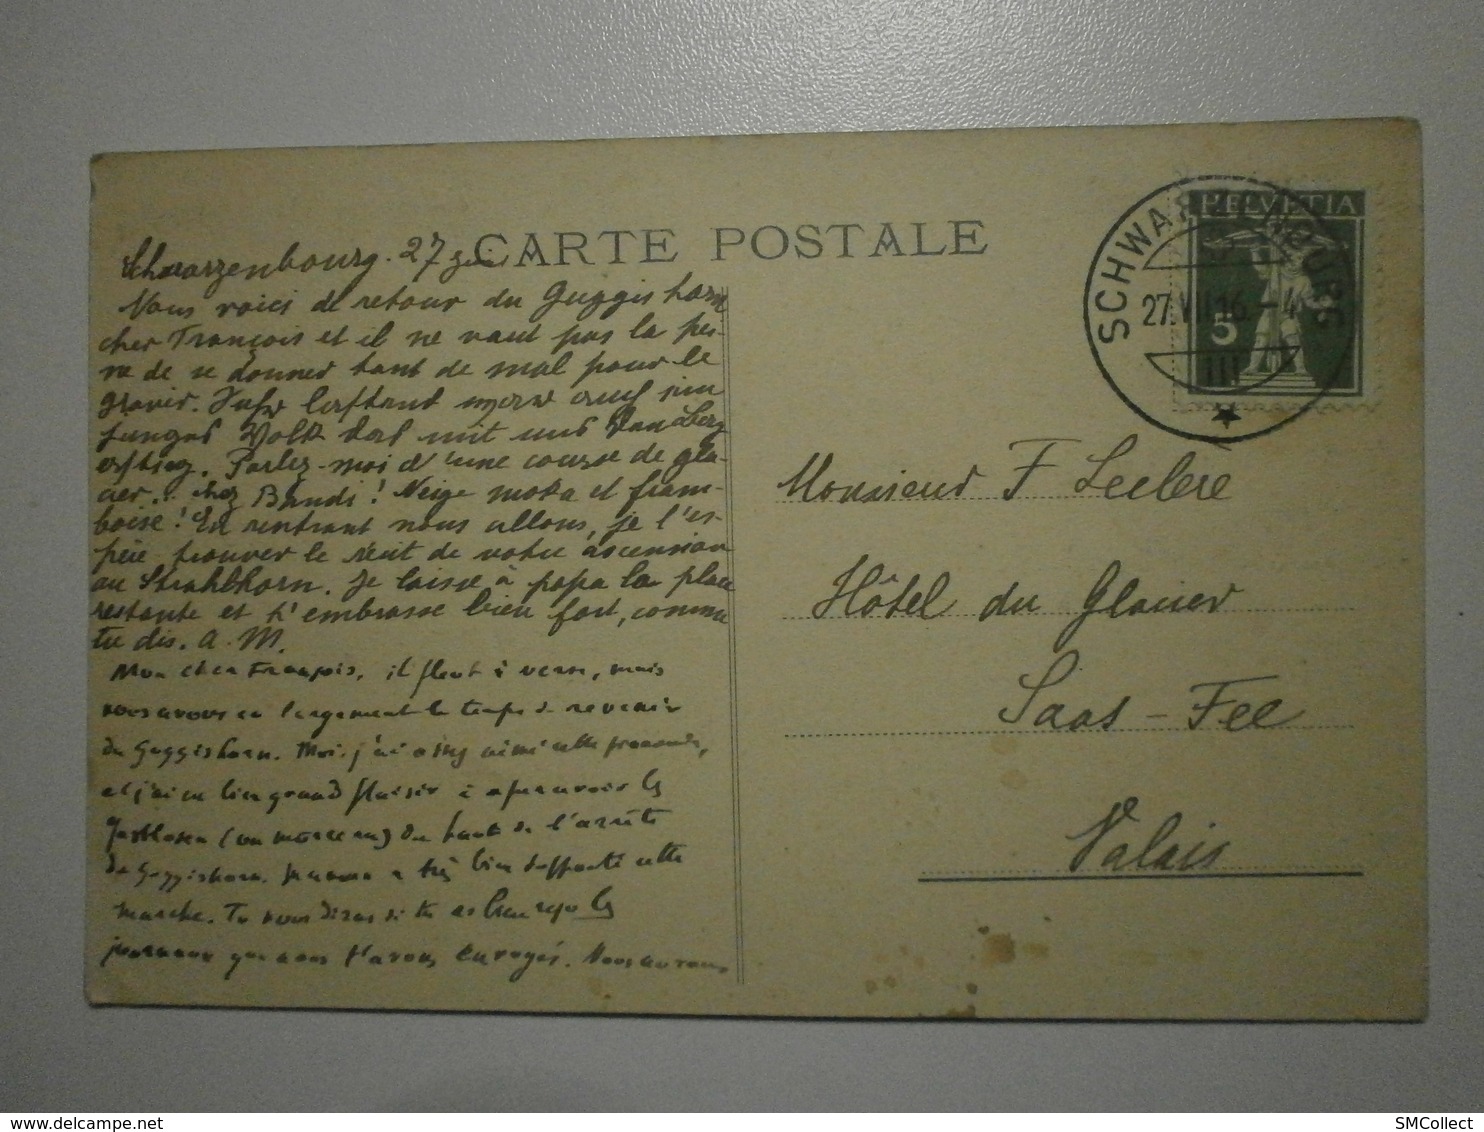 CARTE POSTALE
Schwarzenbourg. 27
Nous voici de retour du Guggishorn
cher François et il ne vaut pas la pei-
ne de se donner tant de mal pour le
gravir.
junges Volk das mit uns
Parlez-moi d'une course de gla-
cier.. chez Bandi! Neige moka et fram-
boise! En rentrant nous allons, je l'es-
père trouver le récit de votre ascension
au Strahlhorn. Je laisse à papa la place
restante et t'embrasse bien fort, comme
tu dis. A. M.
Mon cher François, il pleut à verse, mais
nous avons eu largement le temps de revenir
du Guggishorn. Moi, j'ai assez aimé cette promenade,
et j'ai eu bien grand plaisir à apercevoir les
Gastlosen (un morceau) du haut de l'arête
du Guggishorn. Maman a très bien supporté cette
marche. Tu nous diras si tu as bien reçu les
journaux que nous t'avons envoyés. Nous aurons
HELVETIA
5
SCHWARZENBURG
27.VII.16.-4
III
Monsieur F Leclere
Hôtel du Glacier
Saas-Fee
Valais
www.delcampe.net
SMCollect